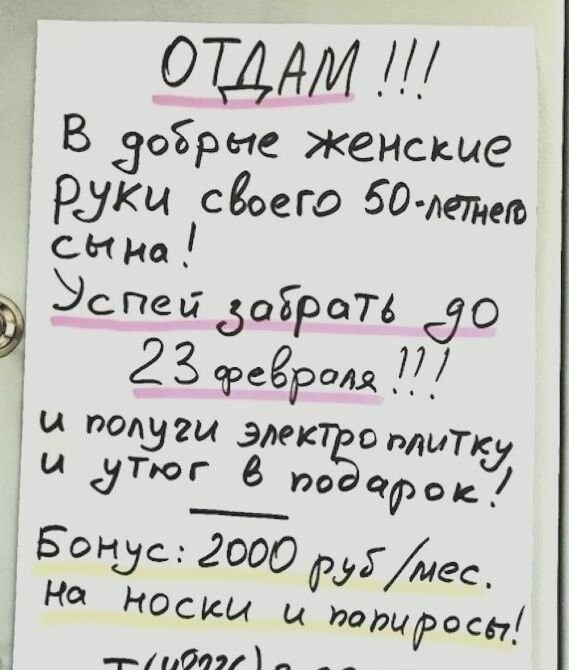 ОТДАМ!!!
В добрые женские
руки своего 50-летнего
сына!
Успей забрать до
23 февраля!!!
и получи электроплитку
и утюг в подарок!
Бонус: 2000 руб/мес.
на носки и папиросы!